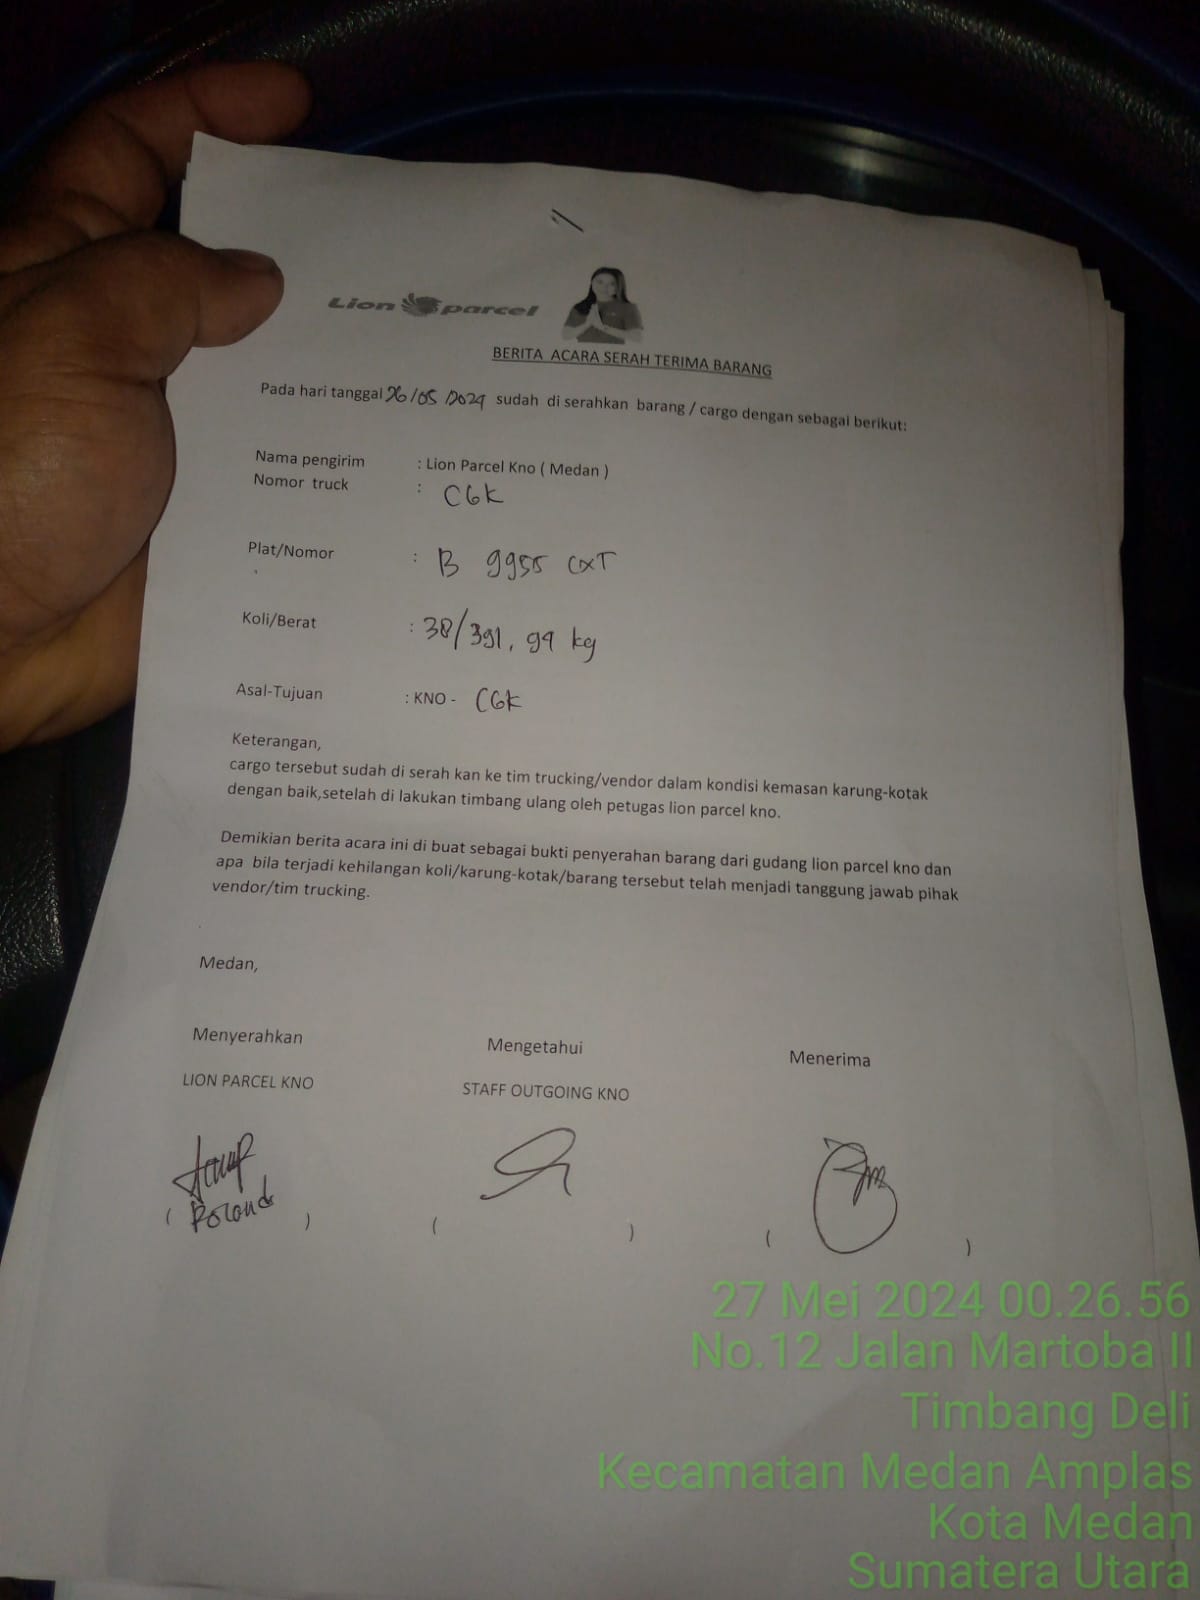 Lion parcel
BERITA ACARA SERAH TERIMA BARANG
Pada hari tanggal 26/05/2024 sudah di serahkan barang / cargo dengan sebagai berikut:
Nama pengirim : Lion Parcel Kno ( Medan )
Nomor truck : CGK
Plat/Nomor : B 9955 CXT
Koli/Berat : 38/391,94 kg
Asal-Tujuan : KNO - CGK
Keterangan,
cargo tersebut sudah di serah kan ke tim trucking/vendor dalam kondisi kemasan karung-kotak
dengan baik,setelah di lakukan timbang ulang oleh petugas lion parcel kno.
Demikian berita acara ini di buat sebagai bukti penyerahan barang dari gudang lion parcel kno dan
apa bila terjadi kehilangan koli/karung-kotak/barang tersebut telah menjadi tanggung jawab pihak
vendor/tim trucking.
Medan,
Menyerahkan Mengetahui Menerima
LION PARCEL KNO STAFF OUTGOING KNO
( ) ( ) ( )
27 Mei 2024 00.26.56
No.12 Jalan Martoba II
Timbang Deli
Kecamatan Medan Amplas
Kota Medan
Sumatera Utara